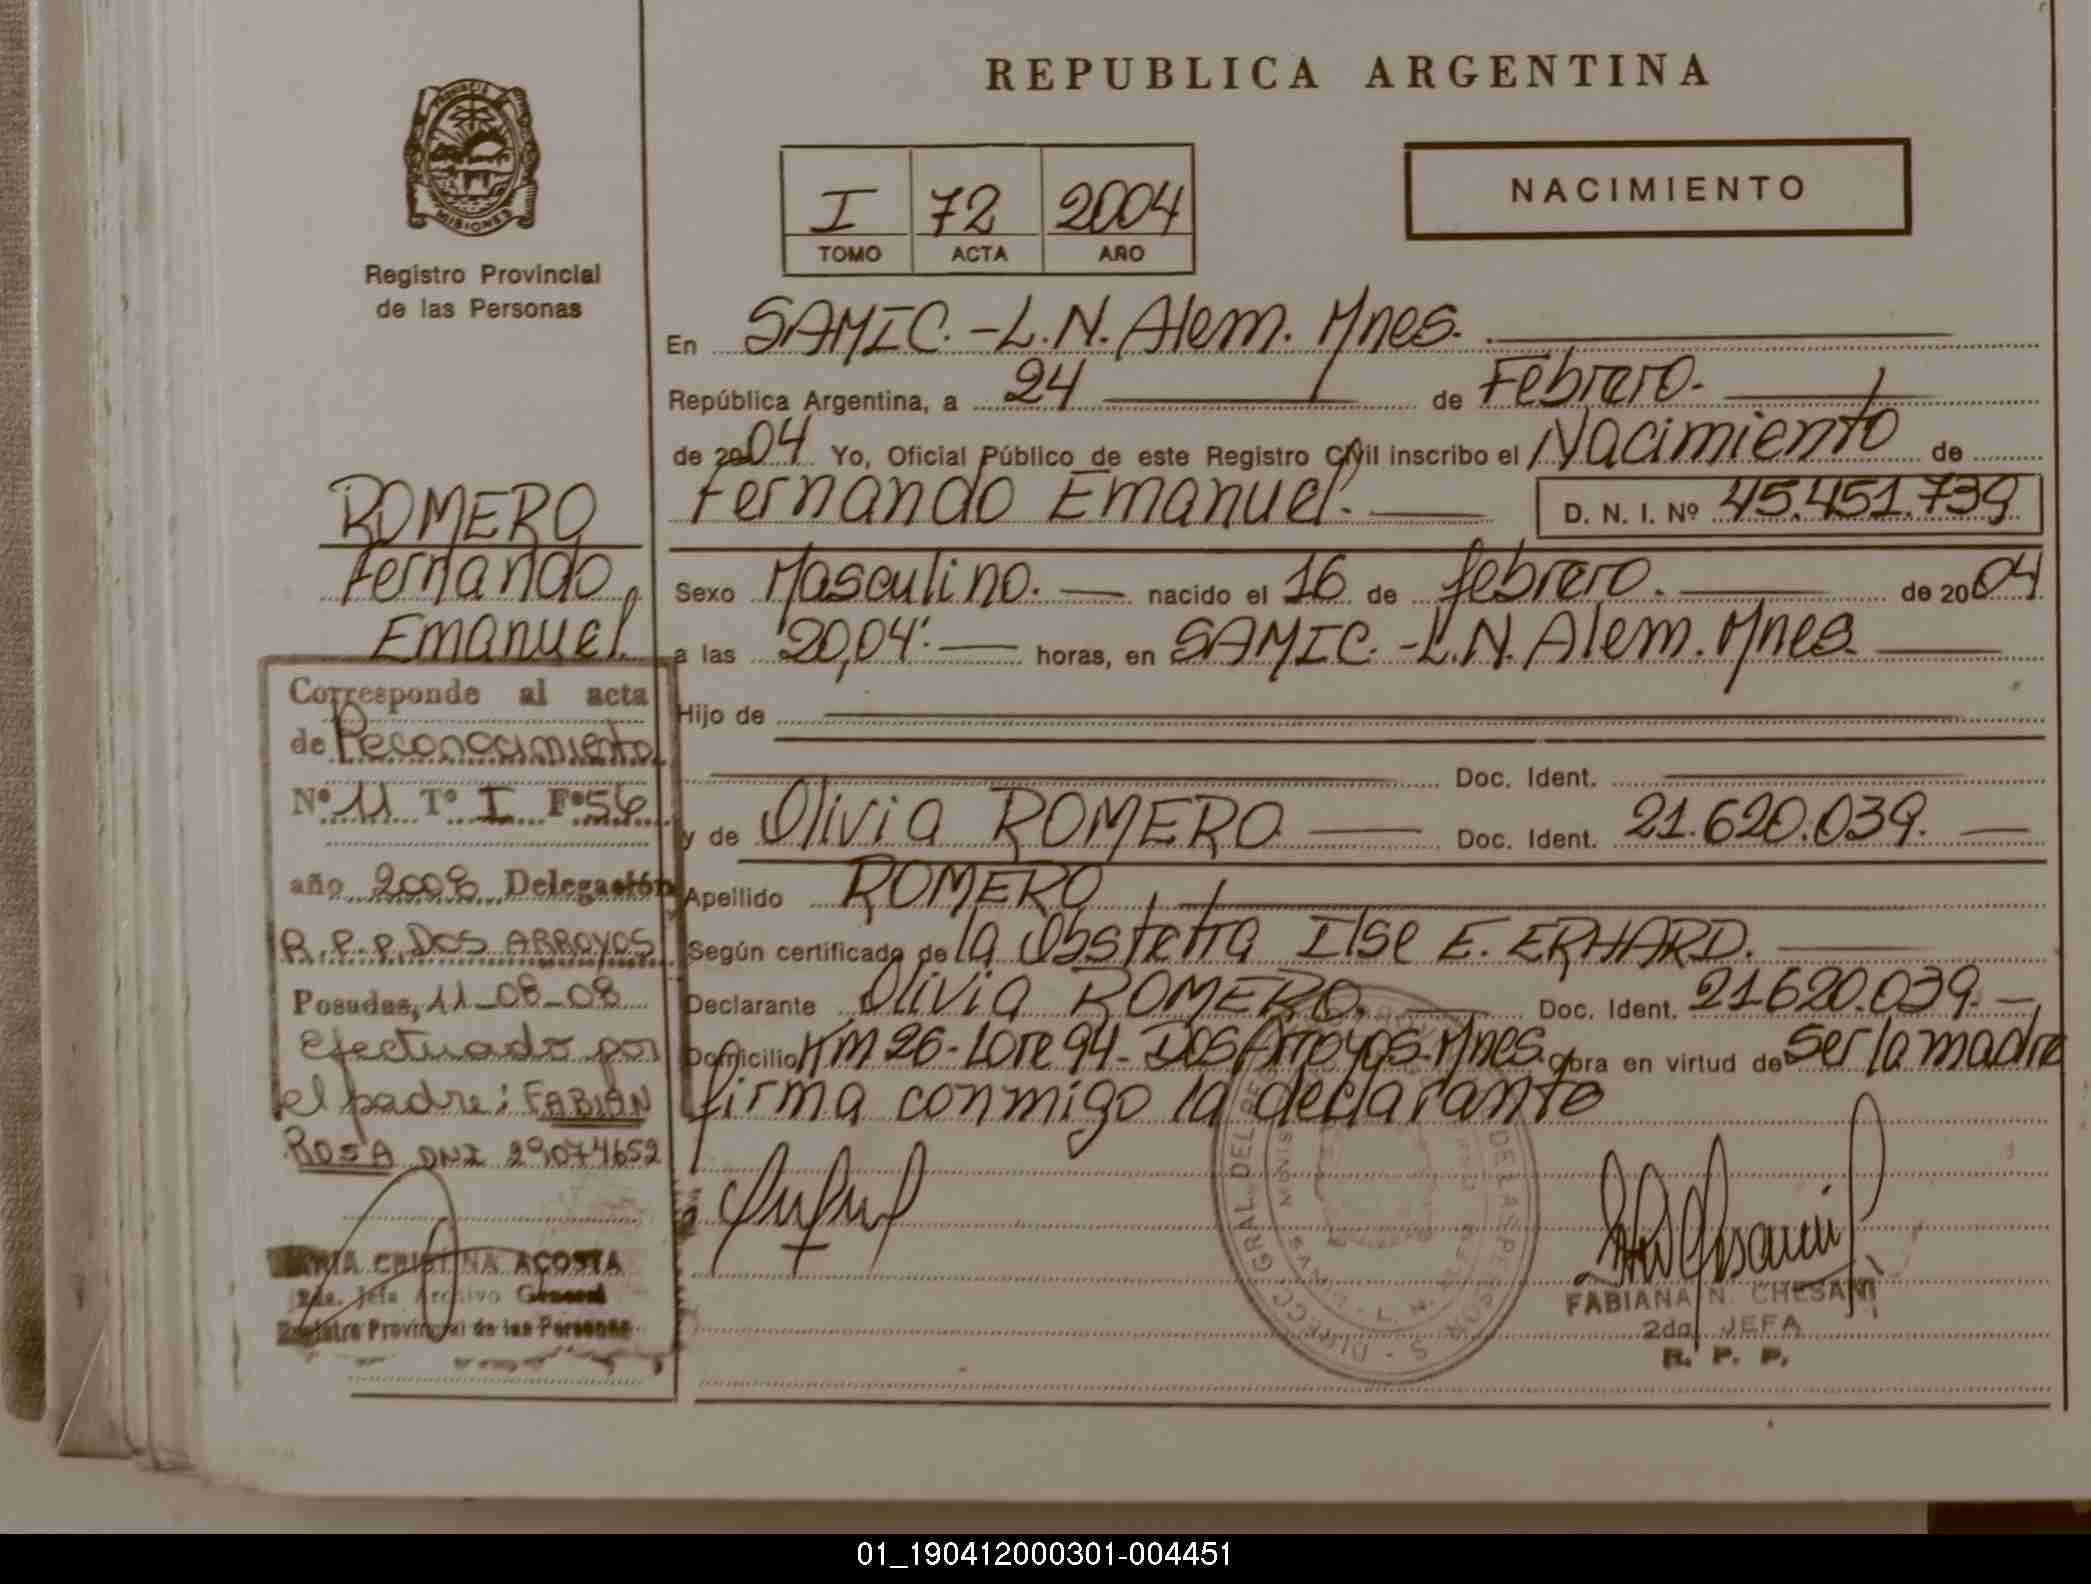 REPUBLICA ARGENTINA
MISIONES
Registro Provincial
de las Personas
I 72 2004
TOMO ACTA AÑO
NACIMIENTO
En SAMIC.-L.N. Alem. Mnes.
República Argentina, a 24 de Febrero.
de 2004 Yo, Oficial Público de este Registro Civil inscribo el Nacimiento de
Fernando Emanuel. D. N. I. Nº 45.451.739
Sexo Masculino. nacido el 16 de febrero. de 2004
a las 20,04'. horas, en SAMIC.-L.N. Alem. Mnes.
Hijo de
Doc. Ident.
y de Olivia ROMERO Doc. Ident. 21.620.039.
Apellido ROMERO
Según certificado de la Obstetra Ilse E. ERHARD.
Declarante Olivia ROMERO. Doc. Ident. 21620.039.
Domicilio KM 26-Lote 94-Dos Arroyos-Mnes. Obra en virtud de ser la madre
firma conmigo la declarante
FABIANA N. CHESANI
2da. JEFA
R. P. P.
ROMERO
Fernando
Emanuel.
Corresponde al acta
de Reconocimiento
Nº 11 Tº I Fº 56
año 2008 Delegación
R.P.P. DOS ARROYOS
Posadas, 11-08-08
efectuado por
el padre: FABIAN
ROSA DNI 29074652
MARIA CRISTINA ACOSTA
2da. Jefa Archivo General
Registro Provincial de las Personas
01_190412000301-004451